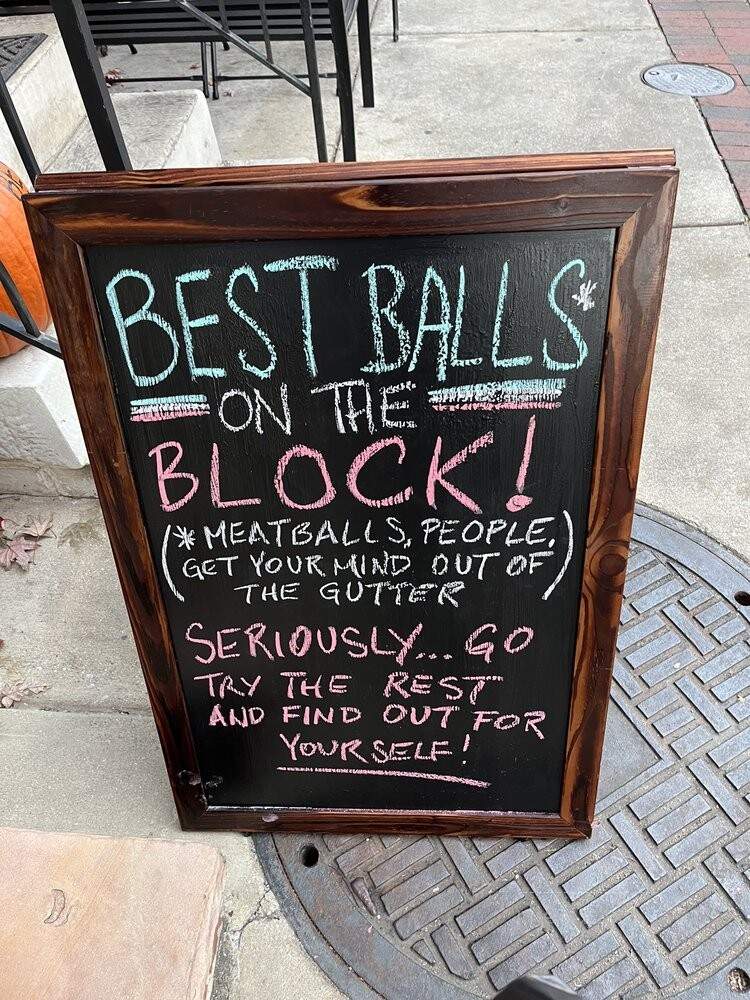 BEST BALLS*
ON THE
BLOCK!
(* MEATBALLS, PEOPLE.
GET YOUR MIND OUT OF
THE GUTTER)
SERIOUSLY... GO
TRY THE REST
AND FIND OUT FOR
YOURSELF!